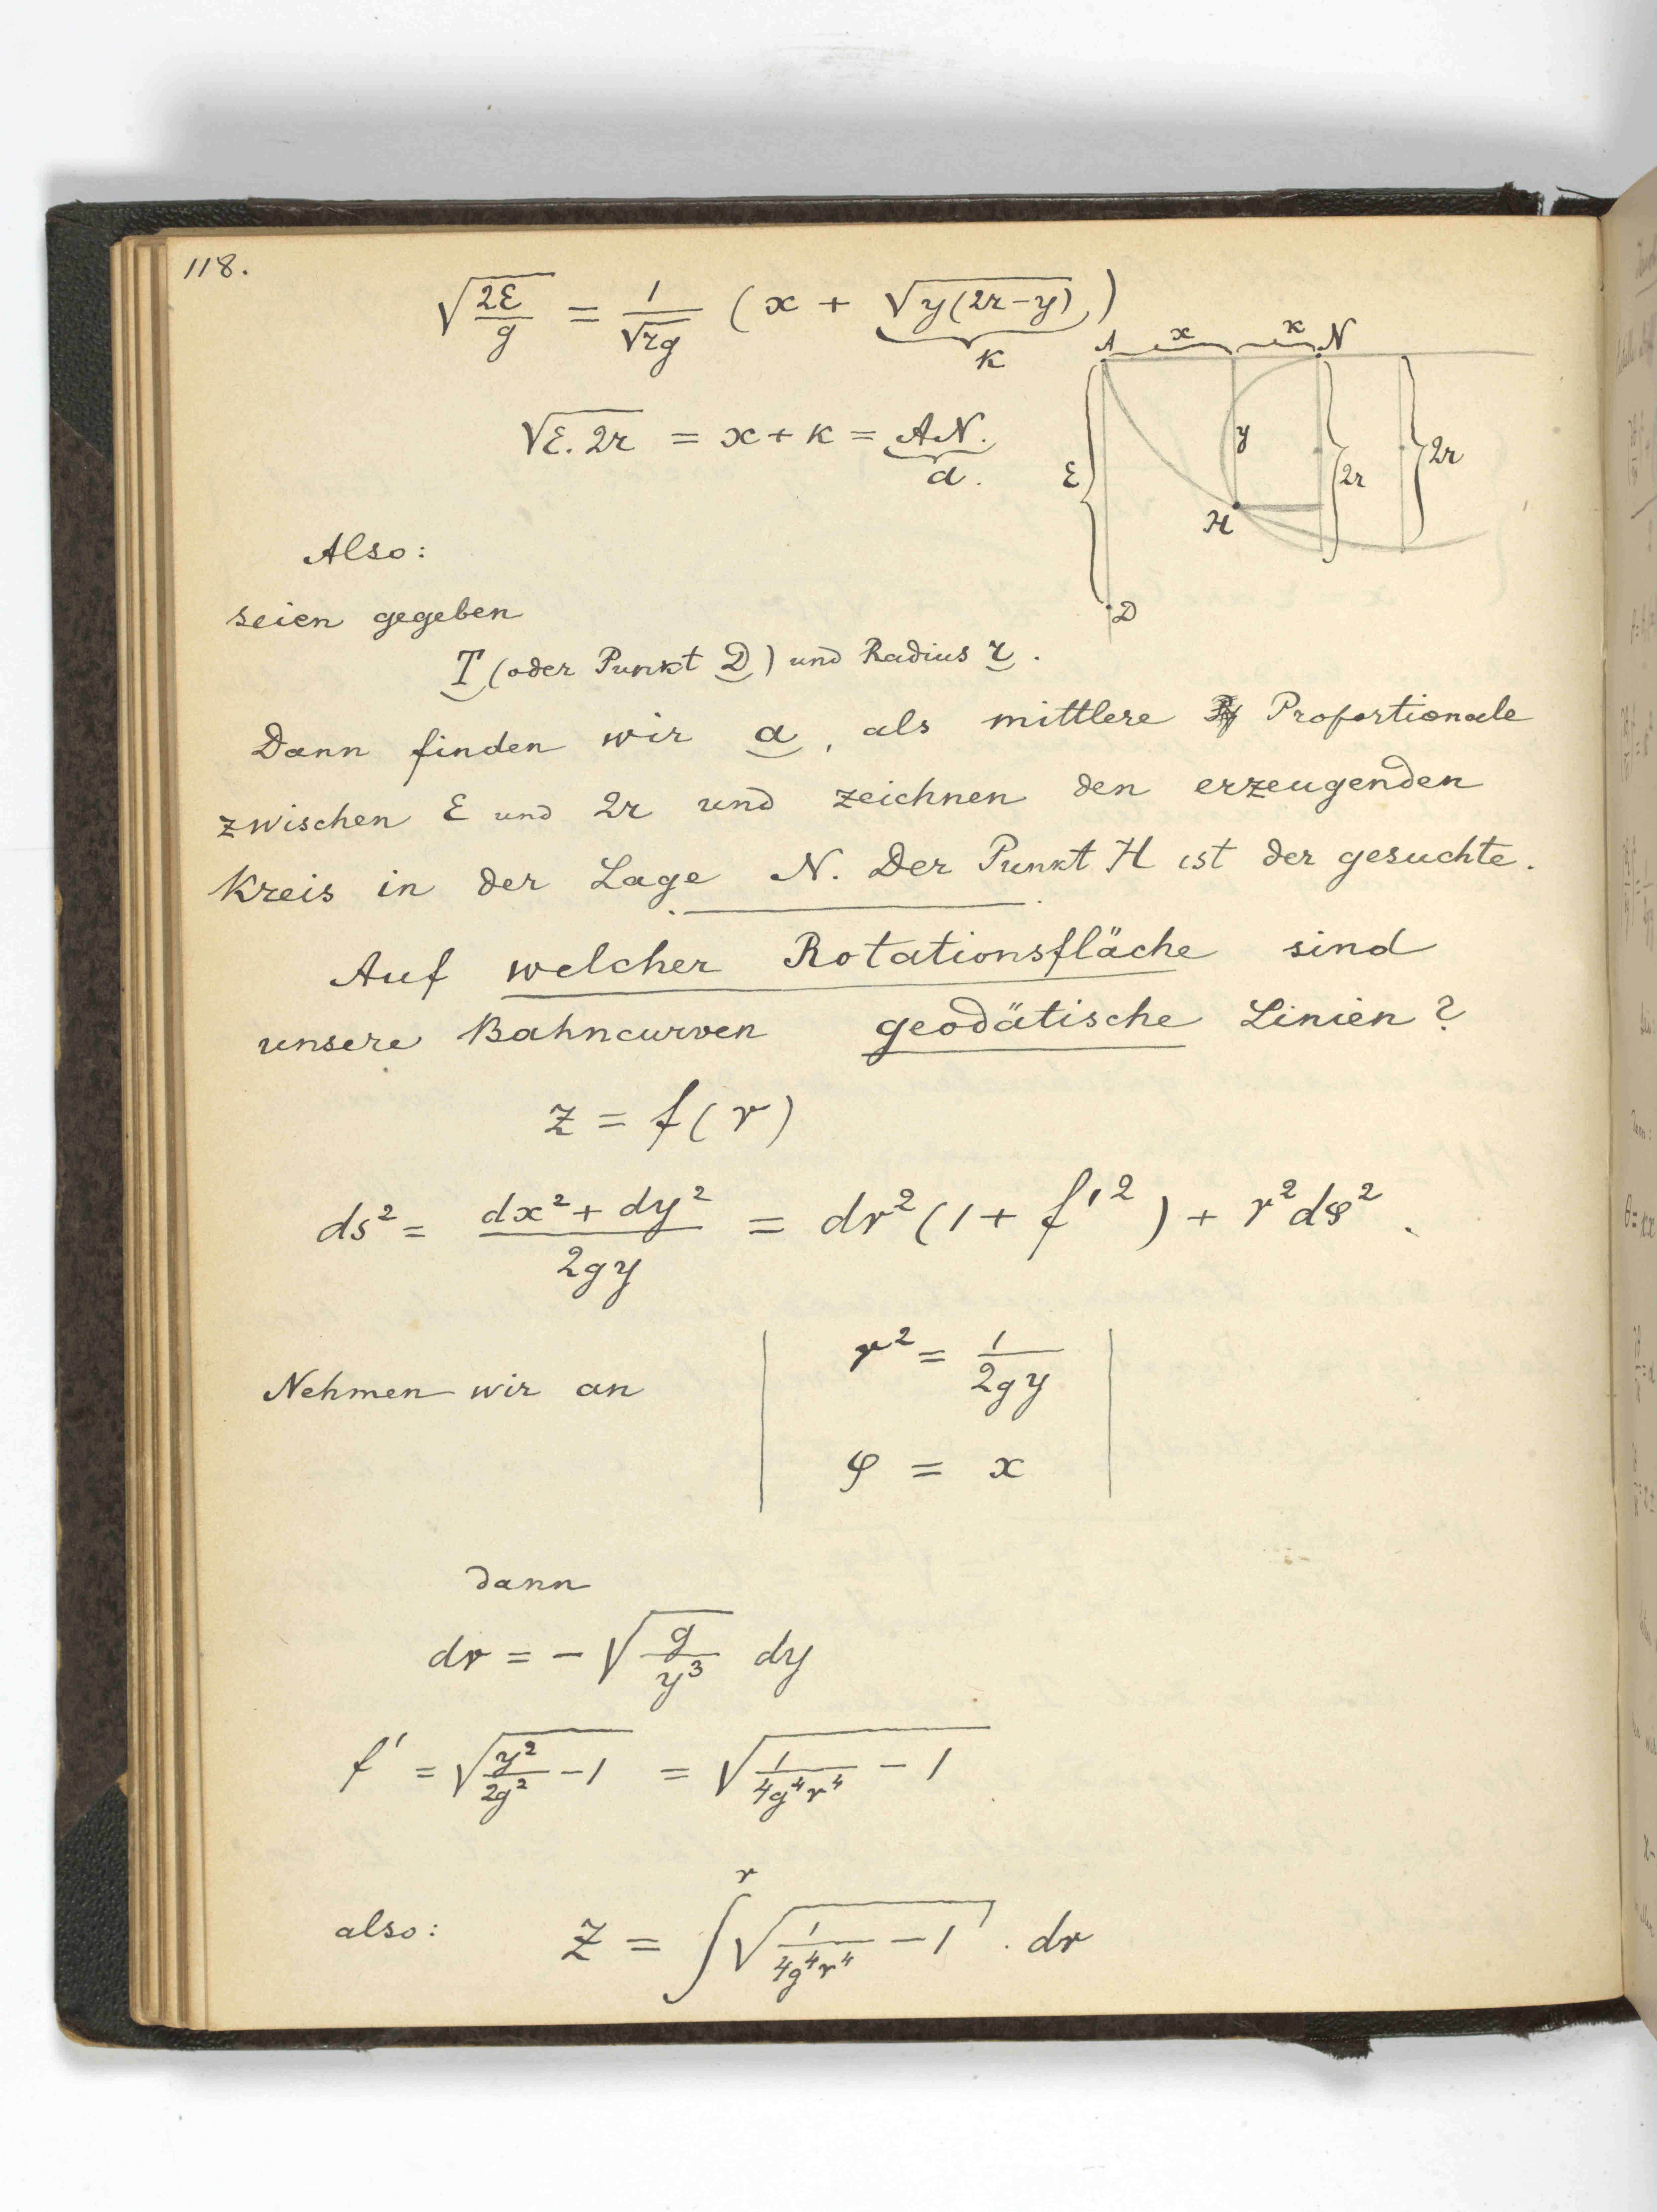 118.
√(2ε/g) = 1/√(rg) (x + √(y(2r-y)))
κ
A x κ N
√(ε.2r) = x+κ = AN.
a.
ε y 2r 2r
H
D
Also:
seien gegeben
T (oder Punkt D) und Radius r.
Dann finden wir a, als mittlere Proportionale
zwischen ε und 2r und zeichnen den erzeugenden
Kreis in der Lage N. Der Punkt H ist der gesuchte.
Auf welcher Rotationsfläche sind
unsere Bahncurven geodätische Linien?
z = f(r)
ds² = (dx² + dy²)/2gy = dr²(1 + f'²) + r²dφ².
Nehmen wir an
r² = 1/2gy
φ = x
dann
dr = - √(g/y³) dy
f' = √(y²/2g² - 1) = √(1/4g⁴r⁴ - 1)
also: z = ∫^r √(1/4g⁴r⁴ - 1) . dr